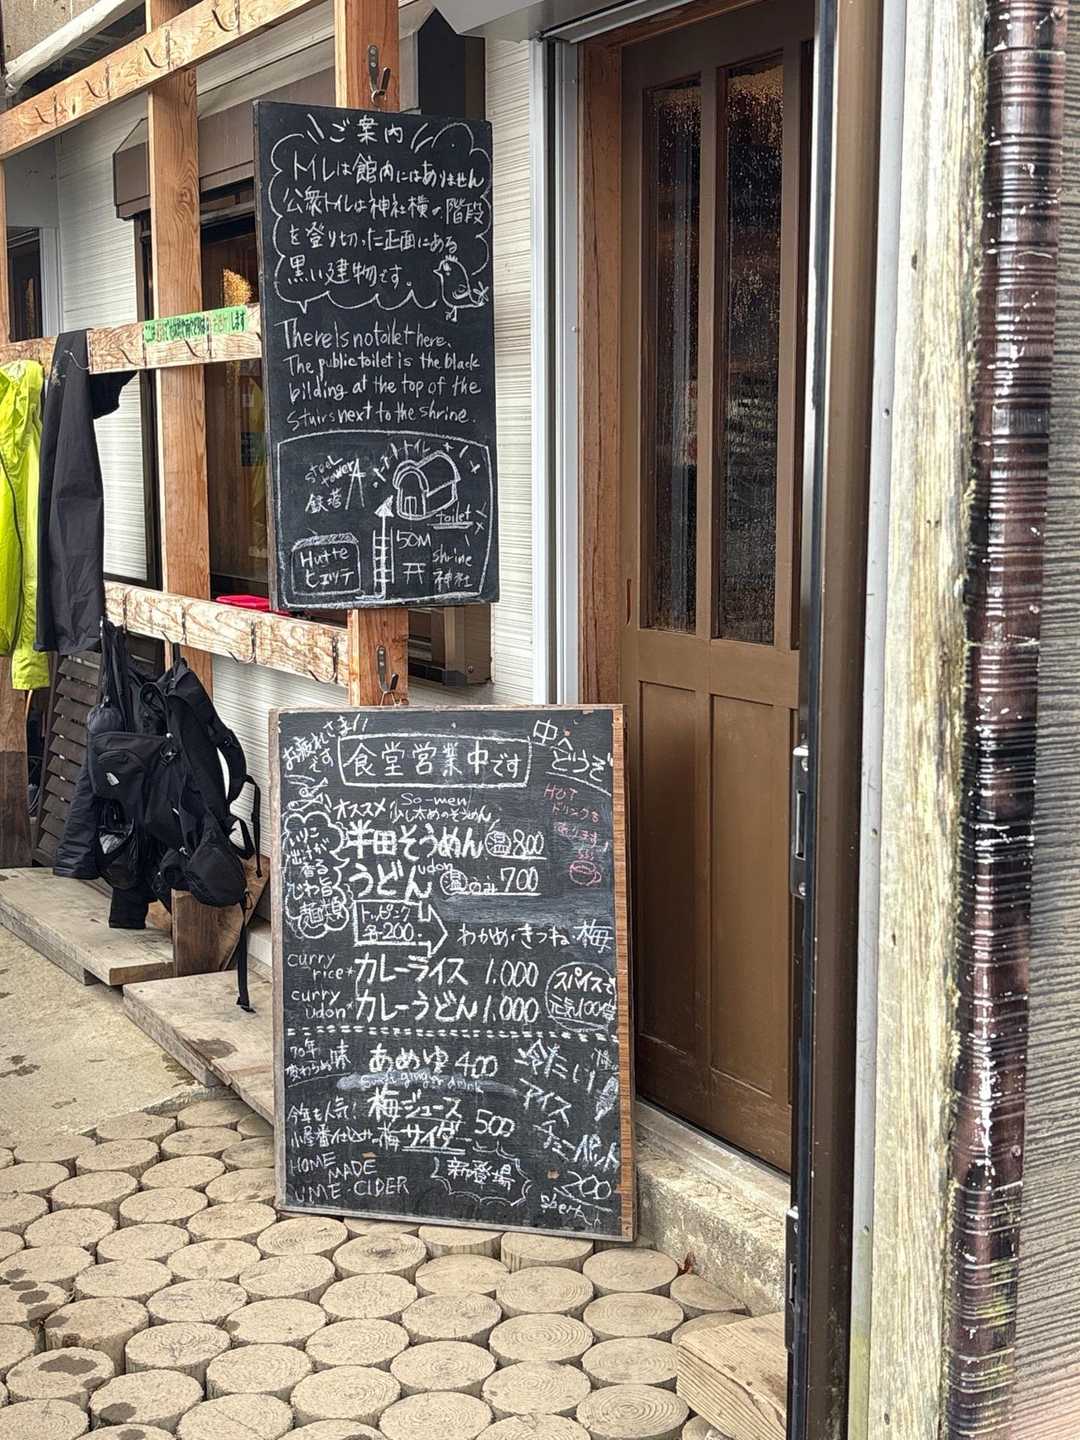 ご案内
トイレは館内にはありません
公衆トイレは神社横の階段
を登り切った正面にある
黒い建物です。
There is no toilet here.
The public toilet is the black
bilding at the top of the
stairs next to the shrine.
steel
tower
鉄塔
トイレ
toilet
50M
Hutte
ヒュッテ
shrine
神社
お疲れさま!!
です
食堂営業中です
中へ
どうぞ
HOT
ドリンクも
あります
So-men
オススメ 少し太めのそうめん
半田そうめん 温 800
いりこ
出汁が
香る
じわ旨
麺類
udon
うどん 温のみ 700
トッピング
各200.
わかめ・きつね・梅
curry
rice* カレーライス 1.000
curry
udon* カレーうどん 1.000
スパイスで
元気100倍
70年
変わらぬ味
あめゆ 400
ginger drink
今年も人気!
梅ジュース 500
梅サイダー
HOME
MADE
UME-CIDER
新登場
冷たい
アイス
チューペット
200